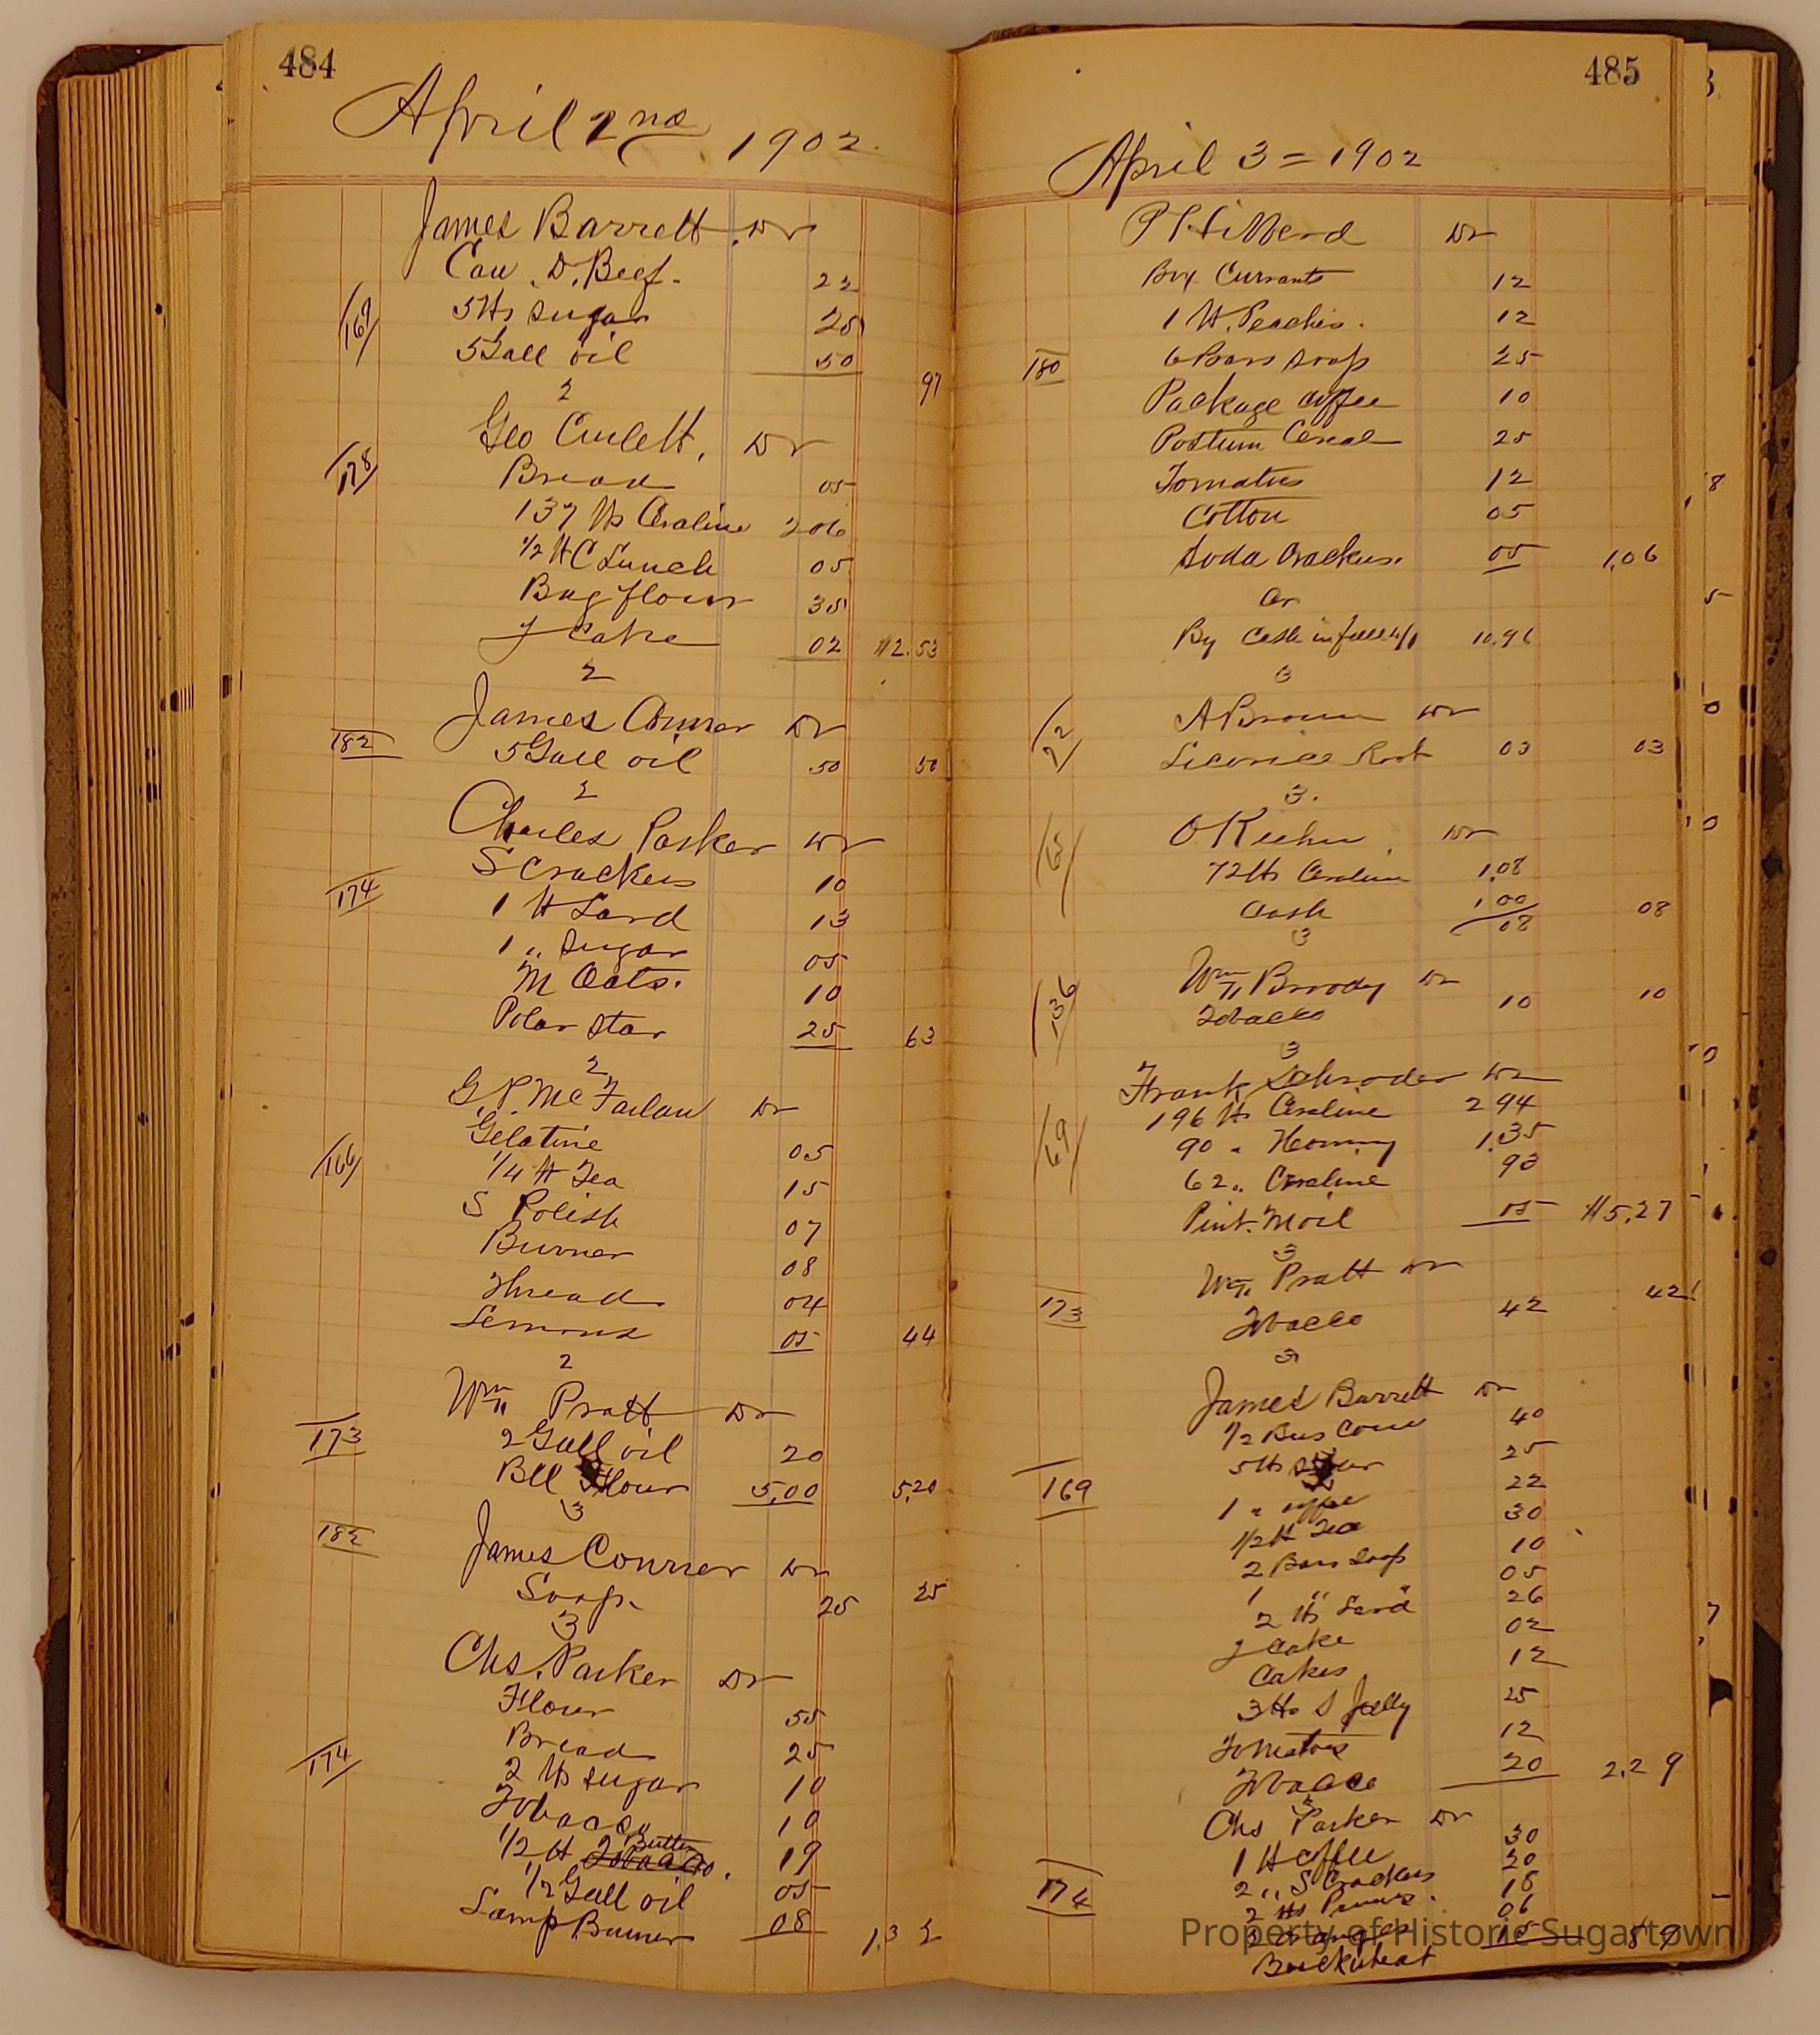 484
April 2nd 1902.
James Barrett Dr
Can D. Beef. 22
169 5 lbs sugar 25
5 Gall oil 50 97
2
Geo Dr
178 Bread 05
137 lbs Ceraline 206
1/2 lb C Lunch 05
Bag flour 35
Y Cake 02 $2.53
2
James Conner Dr
182 5 Gall oil 50 50
2
Charles Parker Dr
S Crackers 10
174 1 lb Lard 13
1 " Sugar 05
M Oats. 10
Polar Star 25 63
2
G.P. McFarlan Dr
Gelatine 05
166 1/4 lb Tea 15
S Polish 07
Burner 08
Thread 04
Lemons 05 44
2
Wm Pratt Dr
173 2 Gall oil 20
Bbl Flour 5.00 5.20
3
182 James Conner Dr
Soap. 25 25
3
Chs. Parker Dr
Flour 55
Bread 25
174 2 lbs sugar 10
Tobacco 10
1/2 lb Butter 19
1/2 Gall oil 05
Lamp Burner 08 1.32
485
April 3 = 1902
P Hibberd Dr
Box Currants 12
1 lb. Peaches. 12
180 6 Bars soap 25
Package coffee 10
Postum Cereal 25
Tomatoes 12
Cotton 05
Soda Crackers. 05 1.06
Cr
By Cash in full 10.96
3
A Brown Dr
22 Licorice Root 03 03
3.
O Kuhn. Dr
72 lbs Ceraline 1.08
Cash 1.00 08
08
3
Wm Broody Dr
136 Tobacco 10 10
3
Frank Schroder Dr
196 lbs Ceraline 294
69 90 " Hominy 1.35
62 " Ceraline 93
Pint. M oil 05 $5.27
3
Wm Pratt Dr
173 Tobacco 42 42
3
James Barrett Dr
1/2 Bus Corn 40
5 lbs sugar 25
169 1 " coffee 22
1/2 lb Tea 30
2 Bars Soap 10
1 " " 05
2 lbs Lard 26
Y Cake 02
Cakes 12
3 lbs S Jelly 25
Tomatoes 12
Tobacco 20 2.29
3
Chs Parker Dr
1 lb coffee 30
2 " S Crackers 20
174 2 lbs Prunes. 18
06
15 89
Buckwheat
Property of Historic Sugartown